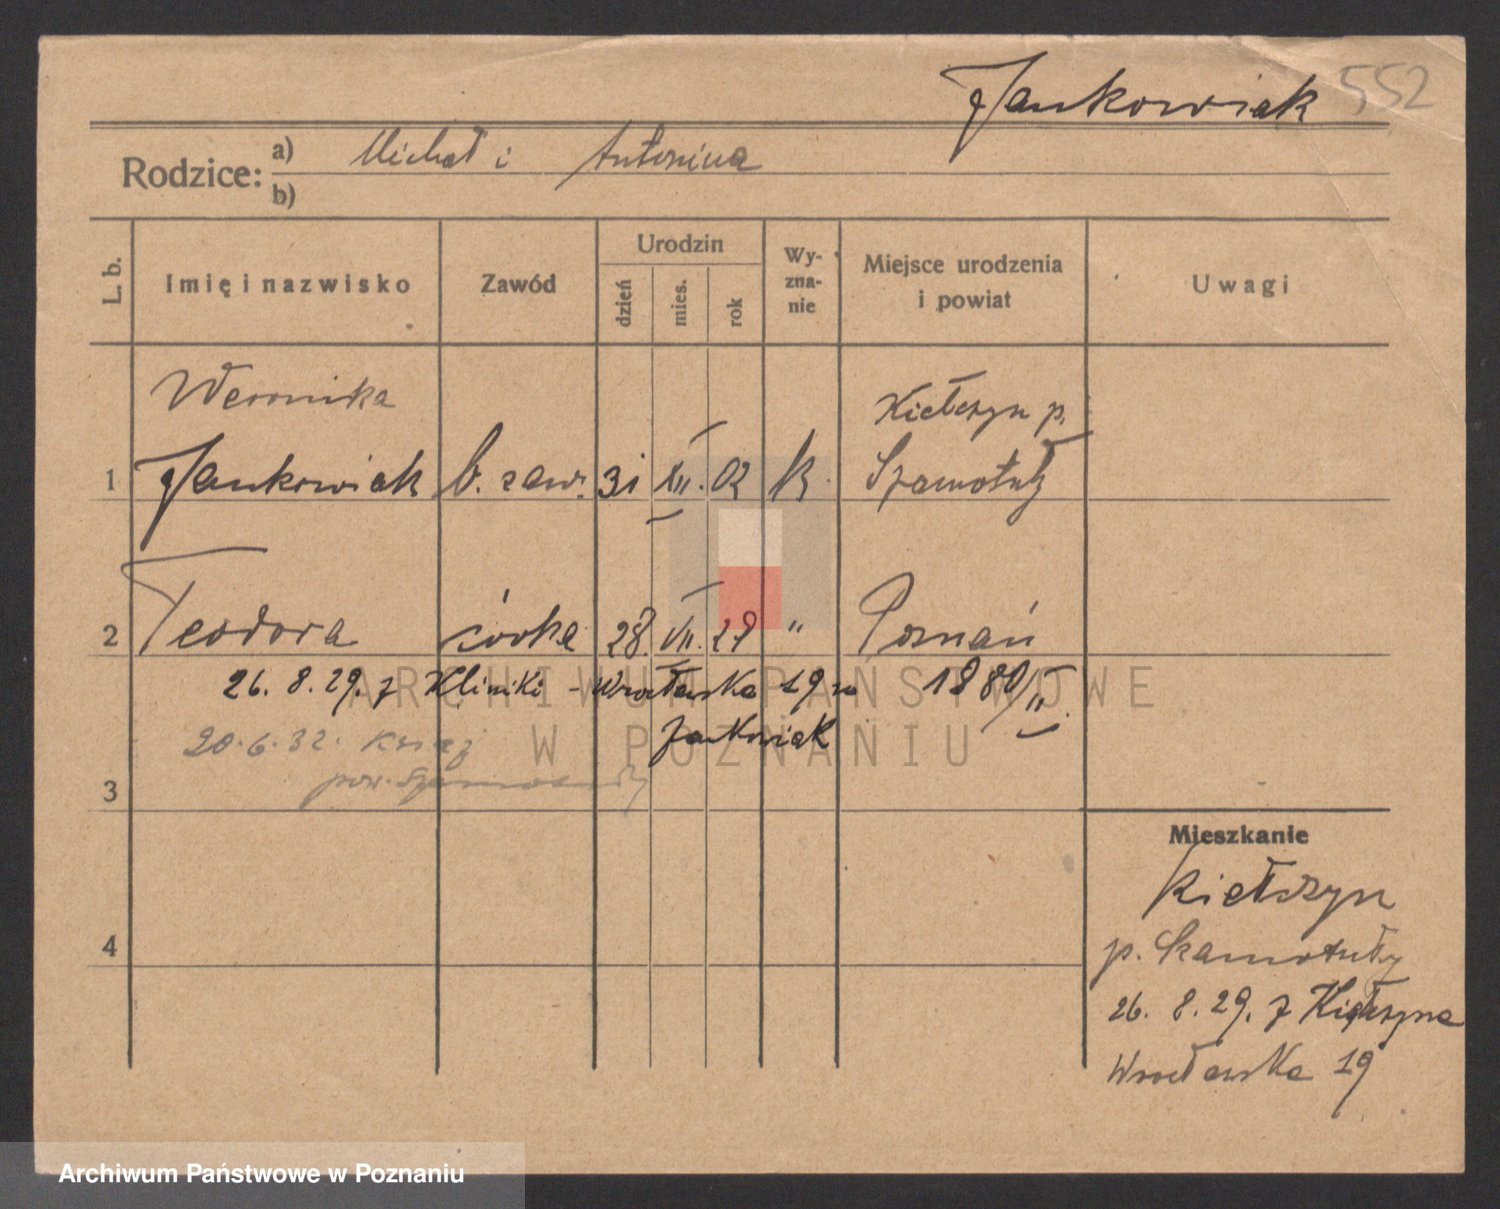 Jankowiak 552
Rodzice: a) Michał i Antonina
b)
L. b.
Imię i nazwisko
Zawód
Urodzin
dzień
mies.
rok
Wy-
zna-
nie
Miejsce urodzenia
i powiat
Uwagi
Weronika
Kiełczyn p.
1 Jankowiak b. zaw. 31 XII. 02 k. Szamotuły
2 Teodora córka 28. VII. 29 " Poznań
26. 8. 29. z Kliniki - Wrocławska 19 1980/II
Jankowiak
20.6.32.
pow. Szamotuły
3
Mieszkanie
Kiełczyn
4
p. Szamotuły
26. 8. 29. z Kiełczyna
Wrocławska 19
ARCHIWUM PAŃSTWOWE
W POZNANIU
Archiwum Państwowe w Poznaniu